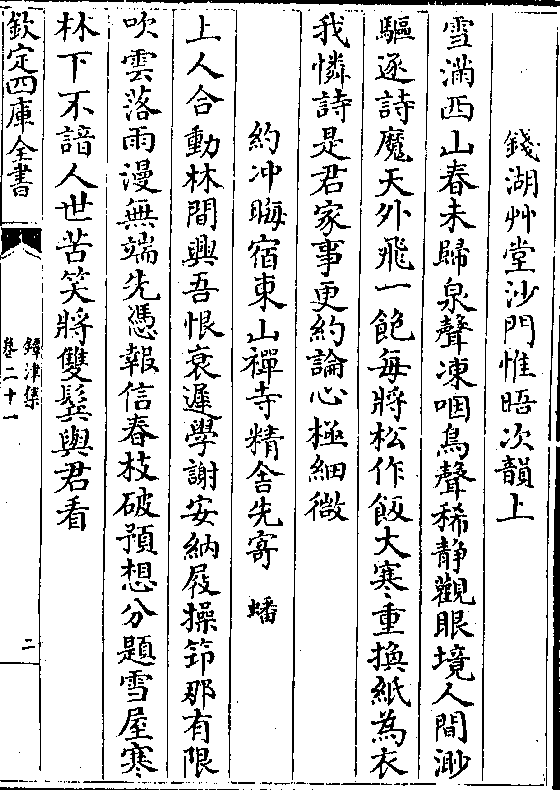 錢湖艸堂沙門惟晤次韻上
雪滿西山春未歸泉聲凍咽鳥聲稀静觀眼境人間渺
驅逐詩魔天外飛一飽每將松作飯大寒重換紙為衣
我憐詩是君家事更約論心極細微
約冲晦宿東山禪寺精舎先寄 蟠
上人合動林間興吾恨衰遲學謝安納屐操筇那有限
吹雲落雨漫無端先憑報信春枝破預想分題雪屋寒
林下不諳人世苦笑將雙鬂與君看
欽定四庫全書
鐔津集
卷二十一
二